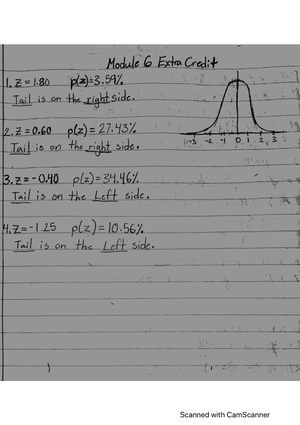 Module 6 Extra Credit
1. Z = 1.80 p(z)=3.59%
Tail is on the right side.
2. Z = 0.60 p(z) = 27.43%
Tail is on the right side.
-3 -2 -1 0 1 2 3
3. Z = -0.40 p(z) = 34.46%
Tail is on the Left side.
4. Z = -1.25 p(z) = 10.56%
Tail is on the Left side.
Scanned with CamScanner